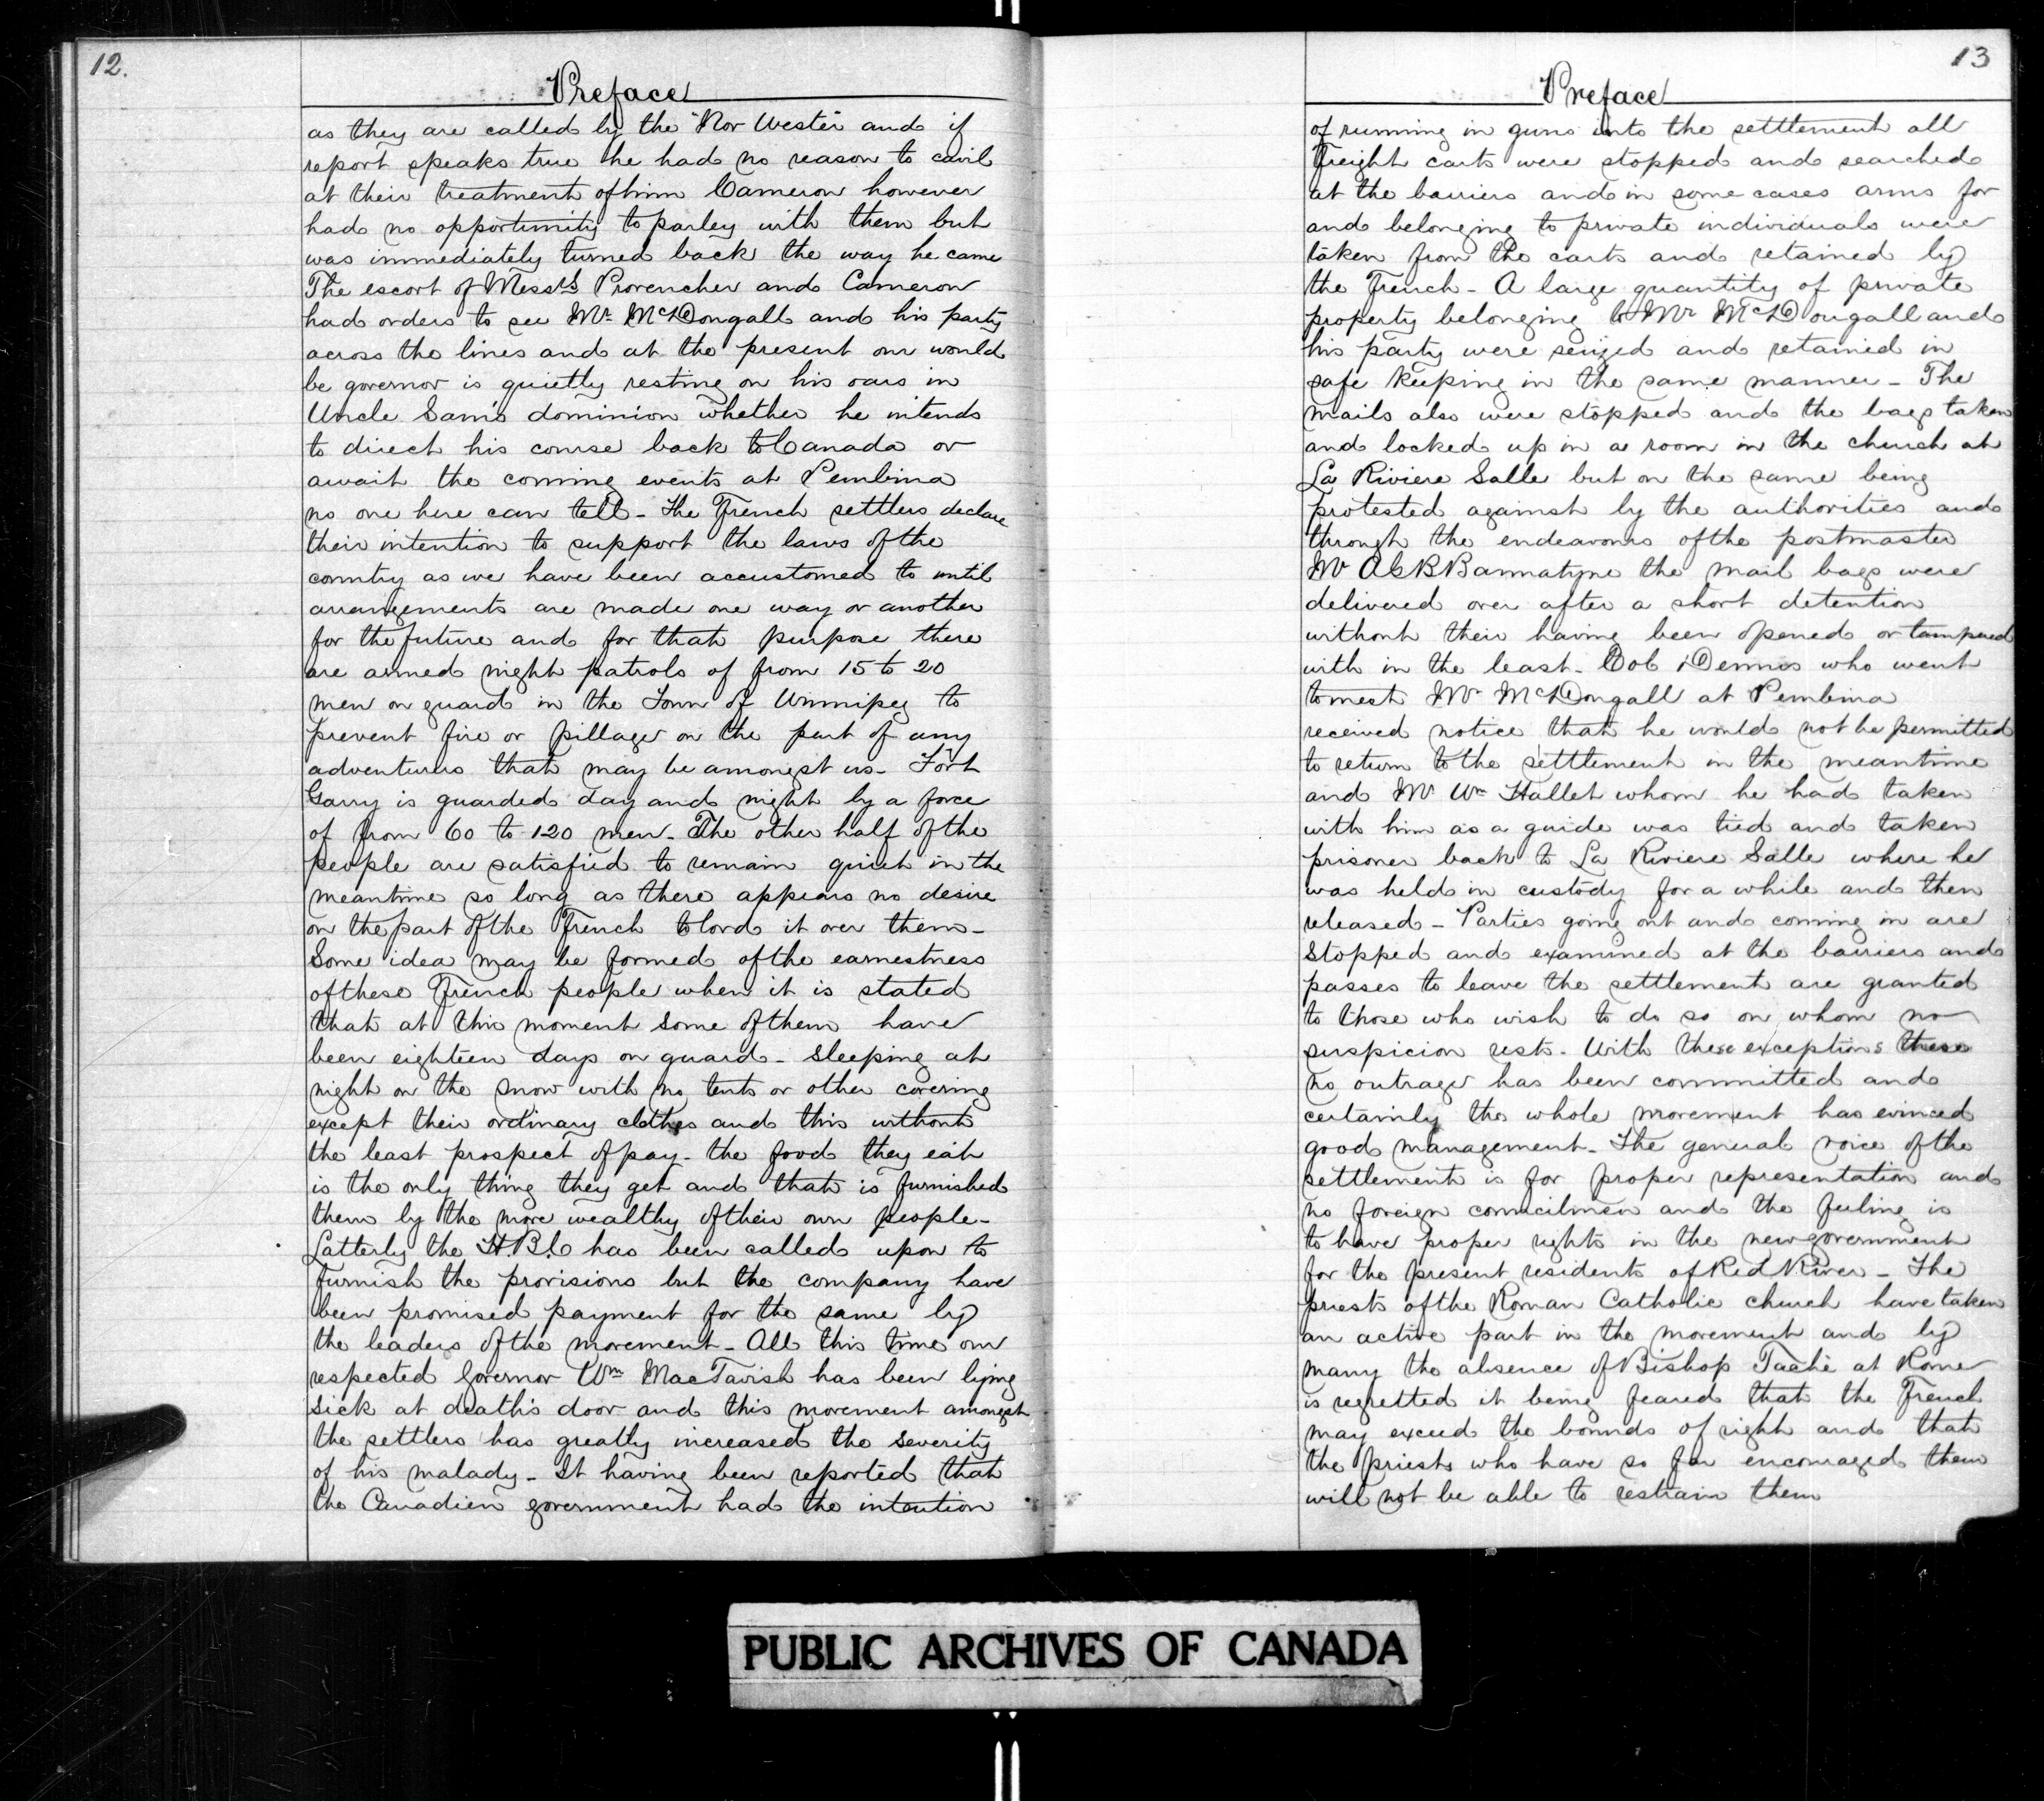 12.
Preface
as they are called by the "Nor Wester" and if
report speaks true he had no reason to cavil
at their treatment of him Cameron however
had no opportunity to parley with them but
was immediately turned back the way he came
The escort of Messrs Provencher and Cameron
had orders to see Mr. McDougall and his party
across the lines and at the present our would
be governor is quietly resting on his oars in
Uncle Sam's dominion whether he intends
to direct his course back to Canada or
await the coming events at Pembina
no one here can tell - The French settlers declare
their intention to support the laws of the
country as we have been accustomed to until
arrangements are made one way or another
for the future and for that purpose there
are armed night patrols of from 15 to 20
men on guard in the Town of Winnipeg to
prevent fire or pillage on the part of any
adventurers that may be amongst us - Fort
Garry is guarded day and night by a force
of from 60 to 120 men - The other half of the
people are satisfied to remain quiet in the
meantime so long as there appears no desire
on the part of the French to lord it over them -
Some idea may be formed of the earnestness
of these French people when it is stated
that at this moment some of them have
been eighteen days on guard - sleeping at
night on the snow with no tents or other covering
except their ordinary clothes and this without
the least prospect of pay - the food they eat
is the only thing they get and that is furnished
them by the more wealthy of their own people -
Latterly the H.B.C has been called upon to
furnish the provisions but the company have
been promised payment for the same by
the leaders of the movement - All this time our
respected Governor Wm MacTavish has been lying
sick at death's door and this movement amongst
the settlers has greatly increased the severity
of his malady - It having been reported that
the Canadien government had the intention
13
Preface
of running in guns into the settlement all
freight carts were stopped and searched
at the barriers and in some cases arms for
and belonging to private individuals were
taken from the carts and retained by
the French - A large quantity of private
property belonging to Mr McDougall and
his party were seized and retained in
safe keeping in the same manner - The
mails also were stopped and the bags taken
and locked up in a room in the church at
La Riviere Salle but on the same being
protested against by the authorities and
through the endeavours of the postmaster
Mr AGB Bannatyne the mail bags were
delivered over after a short detention
without their having been opened or tampered
with in the least - Col Dennis who went
to meet Mr McDougall at Pembina
received notice that he would not be permitted
to return to the settlement in the meantime
and Mr Wm Hallet whom he had taken
with him as a guide was tied and taken
prisoner back to La Riviere Salle where he
was held in custody for a while and then
released - Parties going out and coming in are
stopped and examined at the barriers and
passes to leave the settlement are granted
to those who wish to do so on whom no
suspicion rests - With these exceptions these
no outrage has been committed and
certainly the whole movement has evinced
good management - The general voice of the
settlement is for proper representation and
no foreign councilmen and the feeling is
to have proper rights in the new government
for the present residents of Red River - The
priests of the Roman Catholic church have taken
an active part in the movement and by
many the absence of Bishop Taché at Rome
is regretted it being feared that the French
may exceed the bounds of right and that
the priests who have so far encouraged them
will not be able to restrain them
PUBLIC ARCHIVES OF CANADA